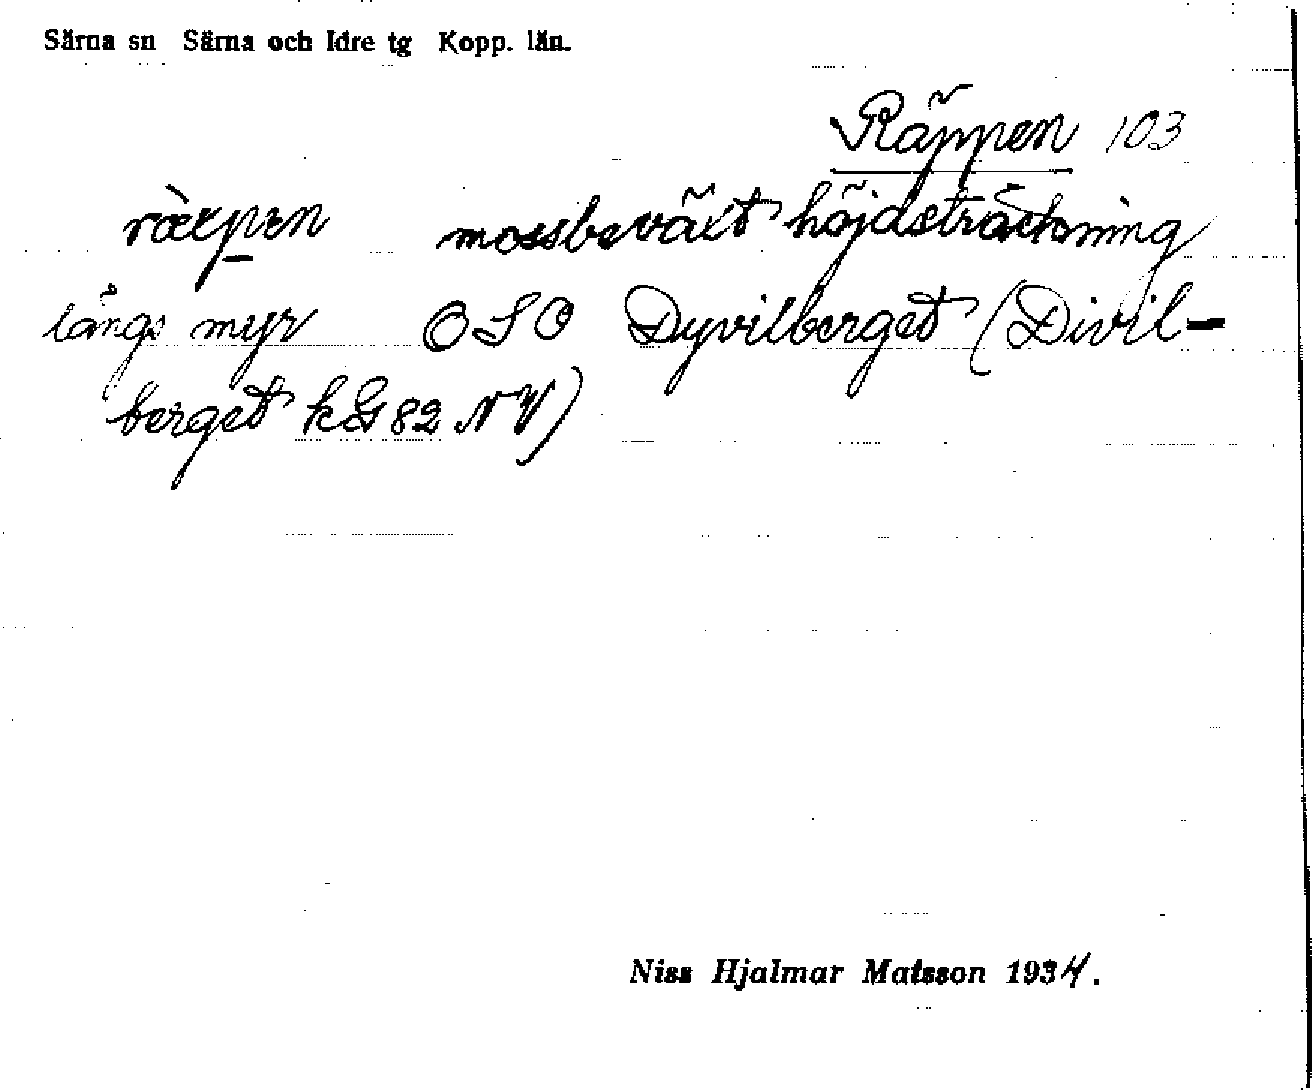 Särna sn Särna och Idre tg Kopp. län.
Räppen 103
mossbeväxt höjdsträckning
längs myr OSO Dyvilberget (Divil-
berget kG 82 NV)
Niss Hjalmar Matsson 1934.